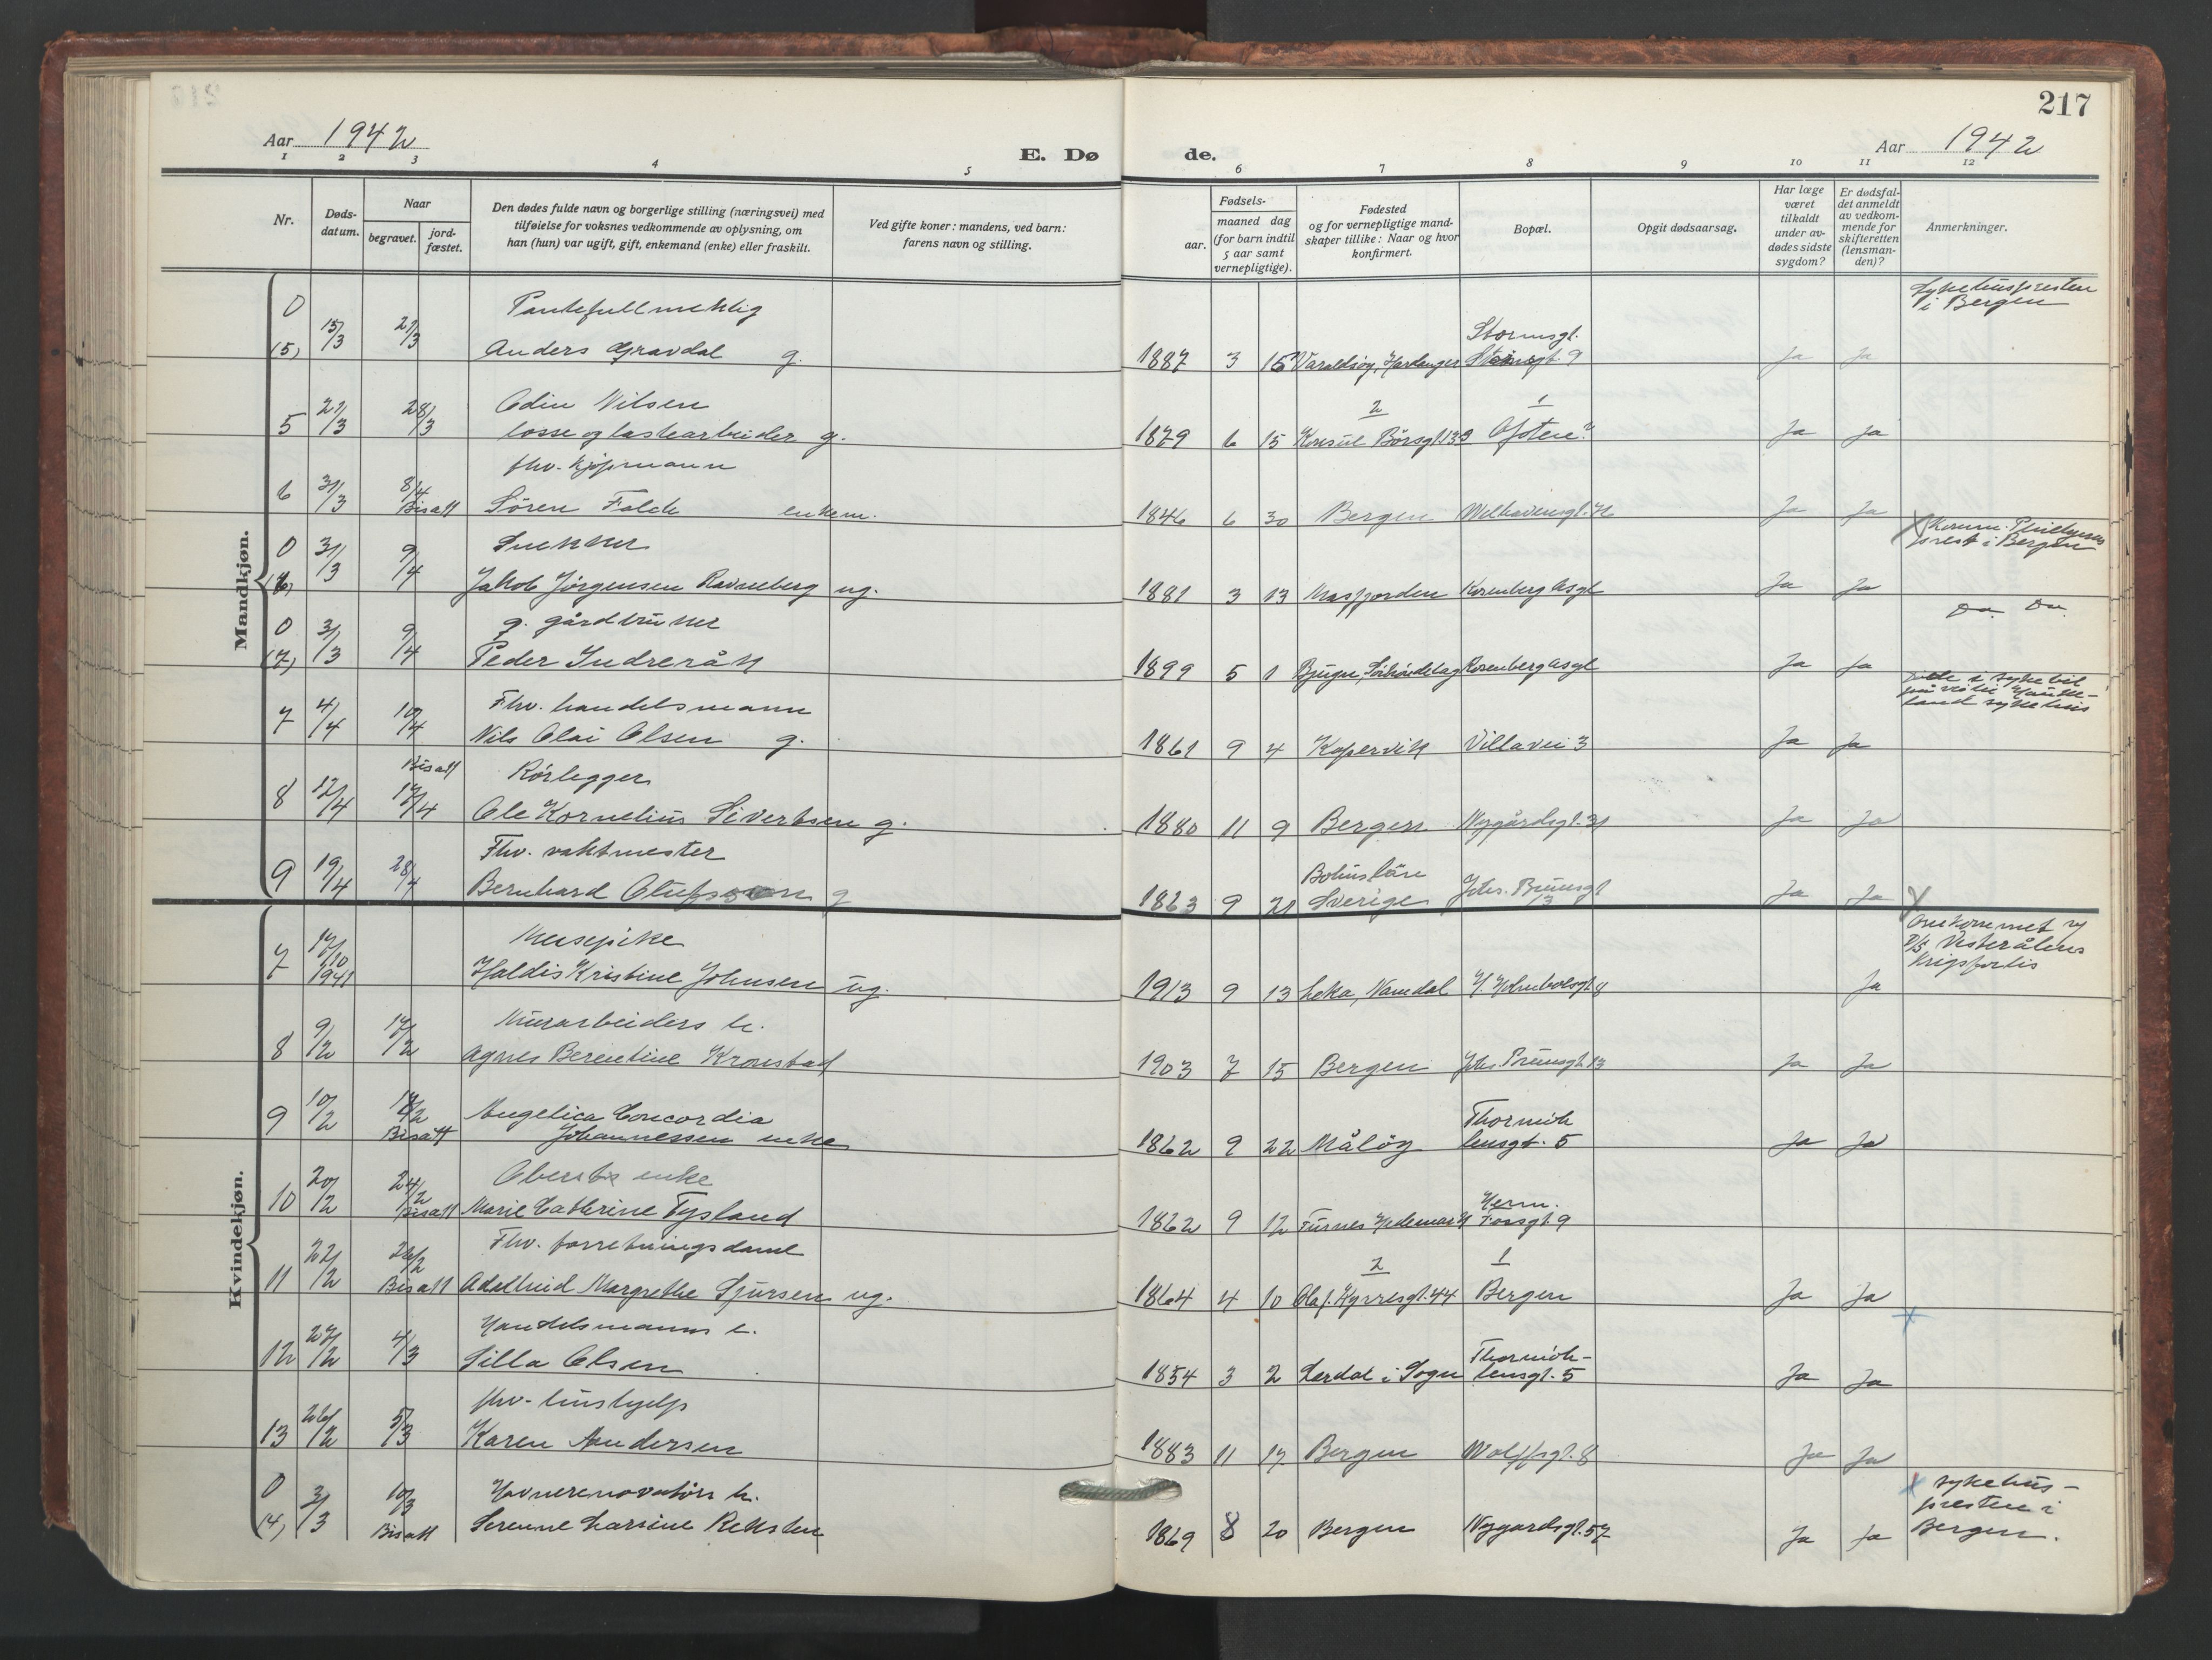 217
Aar 1942
E. Døde.
Aar 1942
1 2 3 4 5 6 7 8 9 10 11 12
Nr.
Døds-
datum.
Naar
begravet.
jord-
fæstet.
Den dødes fulde navn og borgerlige stilling (næringsvei) med
tilføielse for voksnes vedkommende av oplysning, om
han (hun) var ugift, gift, enkemand (enke) eller fraskilt.
Ved gifte koner: mandens, ved barn:
farens navn og stilling.
Fødsels-
aar.
maaned dag
(for barn indtil
5 aar samt
vernepligtige).
Fødested
og for vernepligtige mand-
skaper tillike: Naar og hvor
konfirmert.
Bopæl.
Opgit dødsaarsag.
Har læge
været
tilkaldt
under av-
dødes sidste
sygdom?
Er dødsfal-
det anmeldt
av vedkom-
mende for
skifteretten
(lensman-
den)?
Anmerkninger.
Mandkjøn.
Pantefullmektig
Sykehuspresten
i Bergen
0 (5) 15/3 21/3 Anders Gravdal g. 1887 3 Varaldsøy, Hardanger Stormsgt. 9 Ja Ja
Odin Nilsen
5 21/3 28/3 losse og lastearbeider g. 1879 6 15 2 Konsul Børsgt. 1 Ofoten Ja Ja
fhv. kjøpmann
6 31/3 8/4 Bisatt Sören Falch enkem. 1846 6 30 Bergen Welhavensgt. Ja Ja
Snekker
Komm. Pleiehjems
prest i Bergen
0 (6) 31/3 9/4 Jakob Jørgensen Ravneberg ug. 1881 3 13 Masfjorden Rosenberg Asyl Ja Ja
g. gårdbruker
Do. Do.
0 (7) 31/3 9/4 Peder Indreråk 1899 5 1 Bjugn, Rosenberg Asyl Ja Ja
Fhv. handelsmann
Døde i sykebil
på vei til Hauke-
land sykehus
7 4/4 10/4 Nils Olai Olsen g. 1861 9 4 Kopervik Villavei 3 Ja Ja
Rørlegger
8 12/4 Bisatt 17/4 Ole Kornelius Sivertsen g. 1880 11 9 Bergen Nygårdsgt. 31 Ja Ja
Fhv. vaktmester
9 19/4 28/4 Bernhard g 1863 9 21 Bohuslän Sverige Johs. Brunsgt 13 Ja Ja
Kvindekjøn.
Messepike
Omkommet
D/S Vesterålens
krigsforlis
7 17/10 1941 Haldis Kristine Johnsen ug. 1913 9 13 Leka, Namdal 8 Ja
Murarbeiders h.
8 9/2 17/2 Agnes Berentine Kronstad 1903 7 15 Bergen Johs. Brunsgt. 13 Ja Ja
Angelica Concordia
9 10/2 Bisatt Johannessen enke 1862 9 22 Måløy Thormöhlensgt. 5 Ja Ja
Obersts enke
10 20/2 24/2 Bisatt Marie Cathrine Tysland 1862 9 12 Furnes Hedemark Herm. Fossgt. 9
Fhv. forretningsdame
11 22/2 26/2 Bisatt Adelheid Margrethe Sjursen ug. 1864 4 10 2 Olaf Kyrresgt. 44 1 Bergen Ja Ja
Handelsmanns h.
12 27/2 4/3 Silla Olsen 1854 3 2 Lerdal i Sogn Thormöh-
lensgt. 5 Ja Ja
fhv. hushjelp
13 26/2 5/3 Karen Andersen 1883 11 17 Bergen Wolffsgt. 8 Ja Ja
Havnerenovatörs h.
Sykehus-
presten i
Bergen.
0 (4) 3/3 10/3 Bisatt Serenne Larsine Reksten 1869 8 20 Bergen Nygaardsgt. 57 Ja Ja